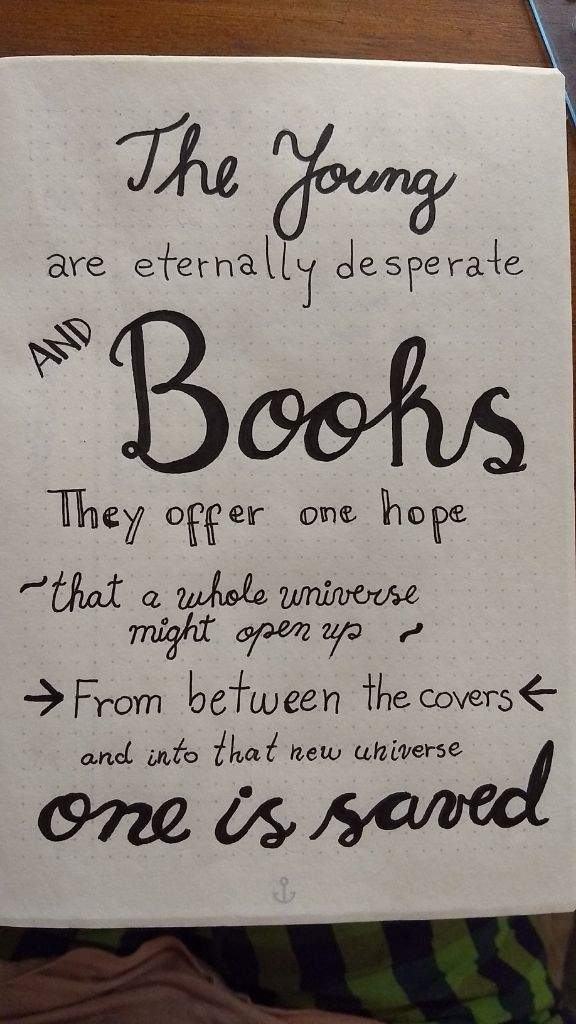 The Young
are eternally desperate
AND Books
They offer one hope
~that a whole universe
might open up ~
→ From between the covers ←
and into that new universe
one is saved